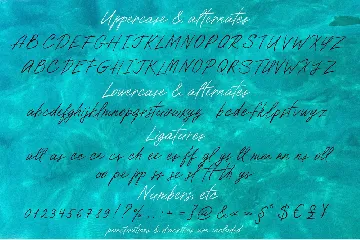 Uppercase & alternates
ABCDEFGHIJKLMNOPQRSTUVWXYZ
ABCDEFGHIJKLMNOPQRSTUVWXYZ
Lowercase & alternates
abcdefghijklmnopqrstuvwxyz bcdefhklpstuwyz
Ligatures
all as oc ce cs ch ee es ff gl gs ll mm nn ns oll
oo pe pp ss se sl tt th ys
Numbers, etc
0123456789!?%
punctuations & diacritics are included